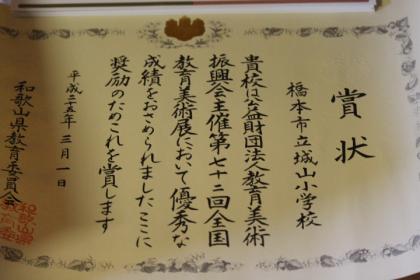 賞状
橋本市立城山小学校
貴校は公益財団法人教育美術
振興会主催第七十二回全国
教育美術展において優秀な
成績をおさめられましたここに
奨励のためこれを賞します
平成二十五年三月一日
和歌山県教育委員会